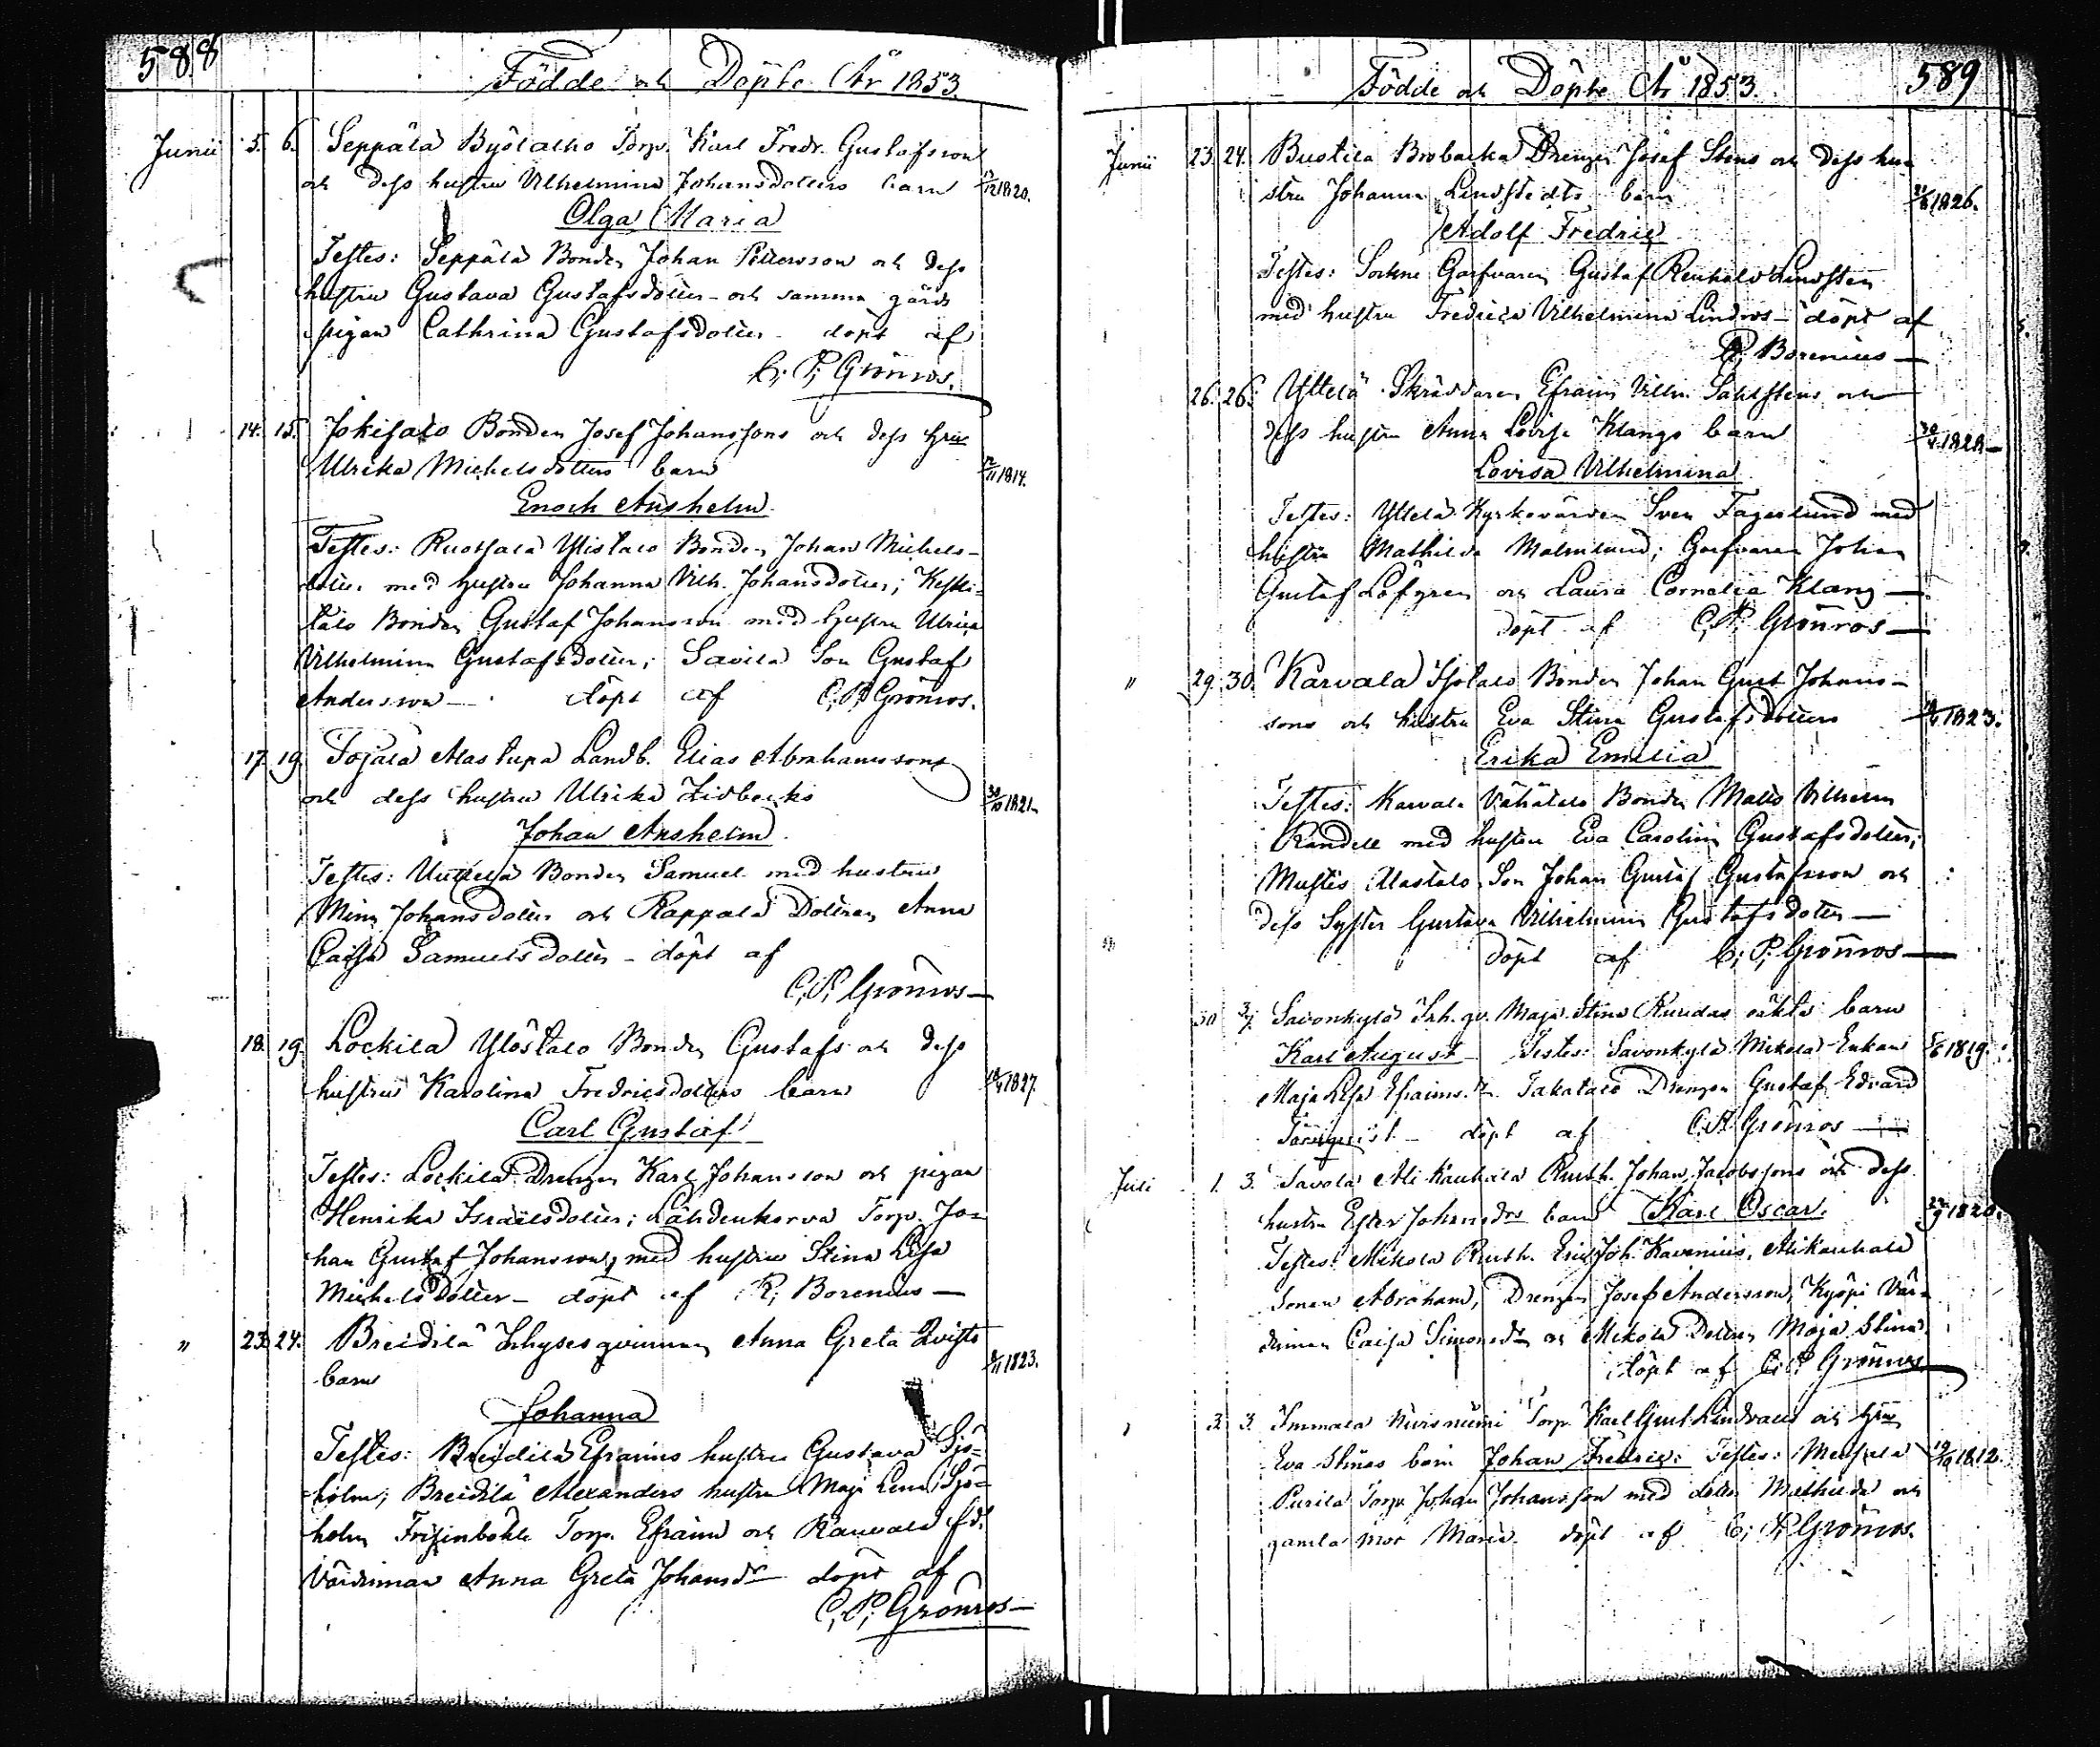 588
Födde och Döpte År 1853.
Junii 5. 6. Seppälä Byölatho Torp. Karl Fredr. Gustafsson
och dess hustru Vilhelmina Johansdotters barn 1820.
Olga Maria
Testes: Seppälä Bonden Johan Pettersson och dess
hustru Gustava Gustafsdotter - och samma gårds
pigan Cathrina Gustafsdotter döpt af
C; P; Grönros.
14. 15. Jokisalo Bonden Josef Johanssons och dess hru
Ulrika Michelsdotters barn 1814.
Enoch Anshelm
Testes: Ruotsala Ylistalo Bonden Johan Michels-
dotter med hustru Johanna Vilh. Johansdotter; Keski-
talo Bonden Gustaf Johansson med hustru Ulrica
Vilhelmina Gustafsdotter; Savila Son Gustaf
Andersson — döpt af C; P; Grönros.
17. 19. Sojala Alastupa Landb. Elias Abrahamssons
och dess hustru Ulrika Lidbecks 30/10 1821.
Johan Anshelm
Testes: Bonden Samuel med hustru
Mina Johansdotter och Rappala Dottren Anna
Caisa Samuelsdotter - döpt af
C; P; Grönros —
18. 19. Lockila Ylöstalo Bonden Gustafs och dess
hustru Karolina Fredricsdotters barn 1827.
Carl Gustaf
Testes: Lockila Drengen Karl Johansson och pigan
Henrika Israelsdotter; Lähdenkorva Torp. Jo=
han Gustaf Johansson, med hustru Stina Lisa
Michelsdotter - döpt af R; Borenius —
" 23. 24. Breidilä Inhysesqvinnan Anna Greta Qvists
barn 1823.
Johanna
Testes: Breidilä Efraims hustru Gustava Sjö=
holm; Breidilä Alexanders hustru Maja Lena Sjö=
holm Torp. Efraim och Karvala fd.
Värdinnan Anna Greta Johansdr döpt af
C; P; Grönros —
589
Födde och Döpte År 1853.
Junii 23. 24. Bustila Brobacka Drengen Josef Stens och dess hu=
stru Johanna Lindstedts barn 1826.
Adolf Fredric
Testes: Sockne Garfvaren Gustaf Renhold Lindsten
med hustru Fredrica Vilhelmina Lindros — döpt af
R; Borenius —
26. 26. Yttelä Skräddaren Efraim Vilh. Sahlstens och
dess hustru Anna Lovisa Klangs barn 1828 —
Lovisa Vilhelmina
Testes: Yttelä Kyrkovärden Sven Fagerlund med
hustru Mathilda Malmlund; Garfvaren Johan
Gustaf Löfgren och Laura Cornelia Klang —
döpt af C; P; Grönros —
" 29. 30. Karvala Isotalo Bonden Johan Gust. Johans-
sons och hustru Eva Stina Gustafsdotters 1823.
Erika Emilia
Testes: Karvala Vähätalo Bonden Matts Vilhelm
Randell med hustru Eva Carolina Gustafsdotter;
Mustis Alastalo Son Johan Gustaf Gustafsson och
dess Syster Gustava Vilhelmina Gustafsdotter —
döpt af C; P; Grönros —
30. 3/7. Savonkylä Inh. qv. Maja Stina Ruridas oäkta barn
Karl August Testes: Savonkylä Mikola Enkan 1819.
Maja Lisa Efraimsdr. Takatalo Drengen Gustaf Edvard
Törnqvist — döpt af C; P; Grönros —
Juli 1. 3. Savola Ali Kauhala Rusth. Johan Jacobssons och dess
hustru Ester Johansdrs barn Karl Oscar. 1820.
Testes: Mikola Rusth. Eric Joh. Kavenius, Alikauhala
Sonen Abraham, Drengen Josef Andersson, Kyöpi Vär=
dinnan Caisa Simonsdr och Mikola Dottren Maja Stina
döpt af C; P; Grönros
3. 3. Immala Torp. Karl Gust. Lindvalls och hru
Eva Stinas barn Johan Fredric: Testes: 1812.
Purila Torp. Johan Johansson med dotter Mathilda och
gamla mor Maria. döpt af C; P; Grönros.